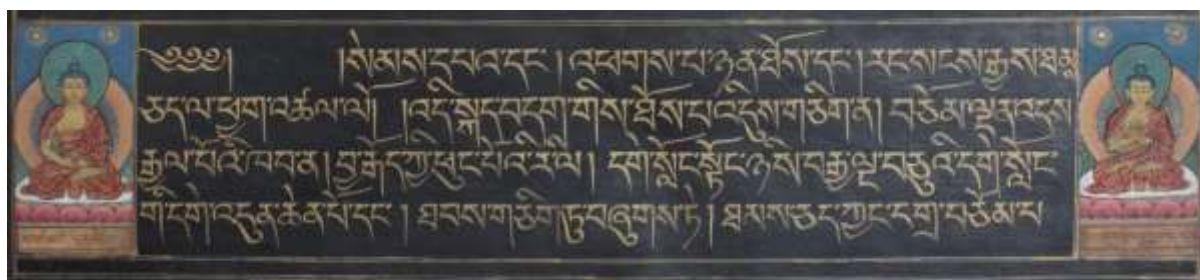 ༄༅༅། །སེམས་དཔའ་དང་། འཕགས་པ་ཉན་ཐོས་དང་། རང་སངས་རྒྱས་ཐམ
ཅད་ལ་ཕྱག་འཚལ་ལོ། །འདི་སྐད་བདག་གིས་ཐོས་པ་དུས་གཅིག་ན། བཅོམ་ལྡན་འདས
རྒྱལ་པོའི་ཁབ་ན། བྱ་རྒོད་ཀྱི་ཕུང་པོའི་རི་ལ། དགེ་སློང་སྟོང་ཉིས་བརྒྱ་ལྔ་བཅུའི་དགེ་སློང་
གི་དགེ་འདུན་ཆེན་པོ་དང་། ཐབས་གཅིག་ཏུ་བཞུགས་ཏེ། ཐམས་ཅད་ཀྱང་དགྲ་བཅོམ་པ